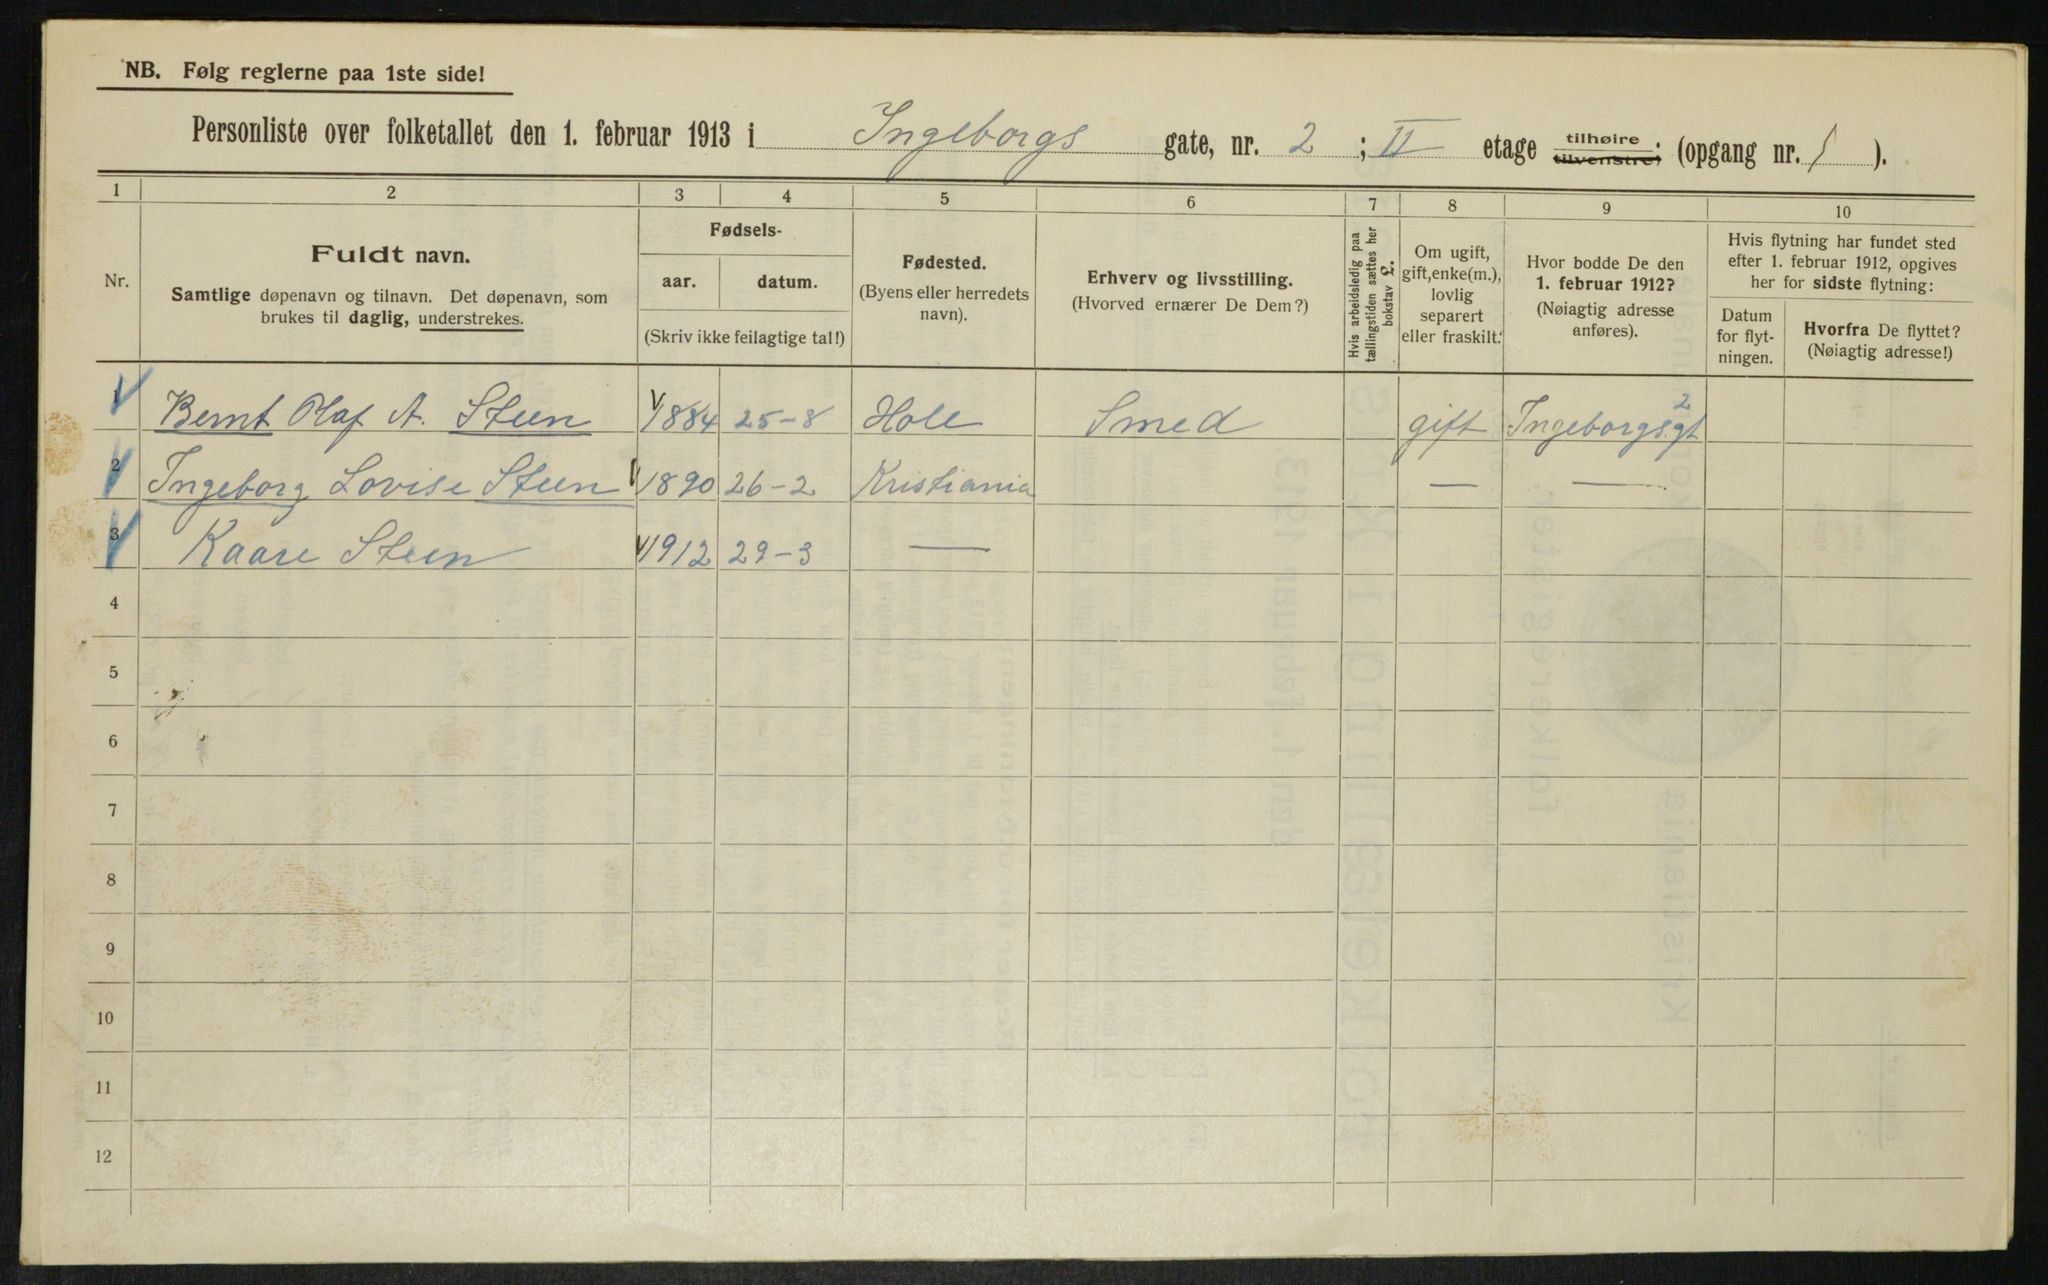 NB. Følg reglerne paa 1ste side!
Personliste over folketallet den 1. februar 1913 i Ingeborgs gate, nr. 2 ; II etage tilhøire tilvenstre; (opgang nr. 1 ).
1 2 3 4 5 6 7 8 9 10
Nr.
Fuldt navn.
Samtlige døpenavn og tilnavn. Det døpenavn, som
brukes til daglig, understrekes.
Fødsels-
aar. datum.
(Skriv ikke feilagtige tal!)
Fødested.
(Byens eller herredets
navn).
Erhverv og livsstilling.
(Hvorved ernærer De Dem?)
Hvis arbeidsledig paa
tællingstiden sættes her
bokstav L.
Om ugift,
gift, enke(m.),
lovlig
separert
eller fraskilt.
Hvor bodde De den
1. februar 1912?
(Nøiagtig adresse
anføres).
Hvis flytning har fundet sted
efter 1. februar 1912, opgives
her for sidste flytning:
Datum
for flyt-
ningen.
Hvorfra De flyttet?
(Nøiagtig adresse!)
1 Bernt Olaf A. Steen 1884 25-8 Hole Smed gift Ingeborgs.gt 2
2 Ingeborg Lovise Steen 1890 26-2 Kristiania — —
3 Kaare Steen 1912 29-3 —
4
5
6
7
8
9
10
11
12